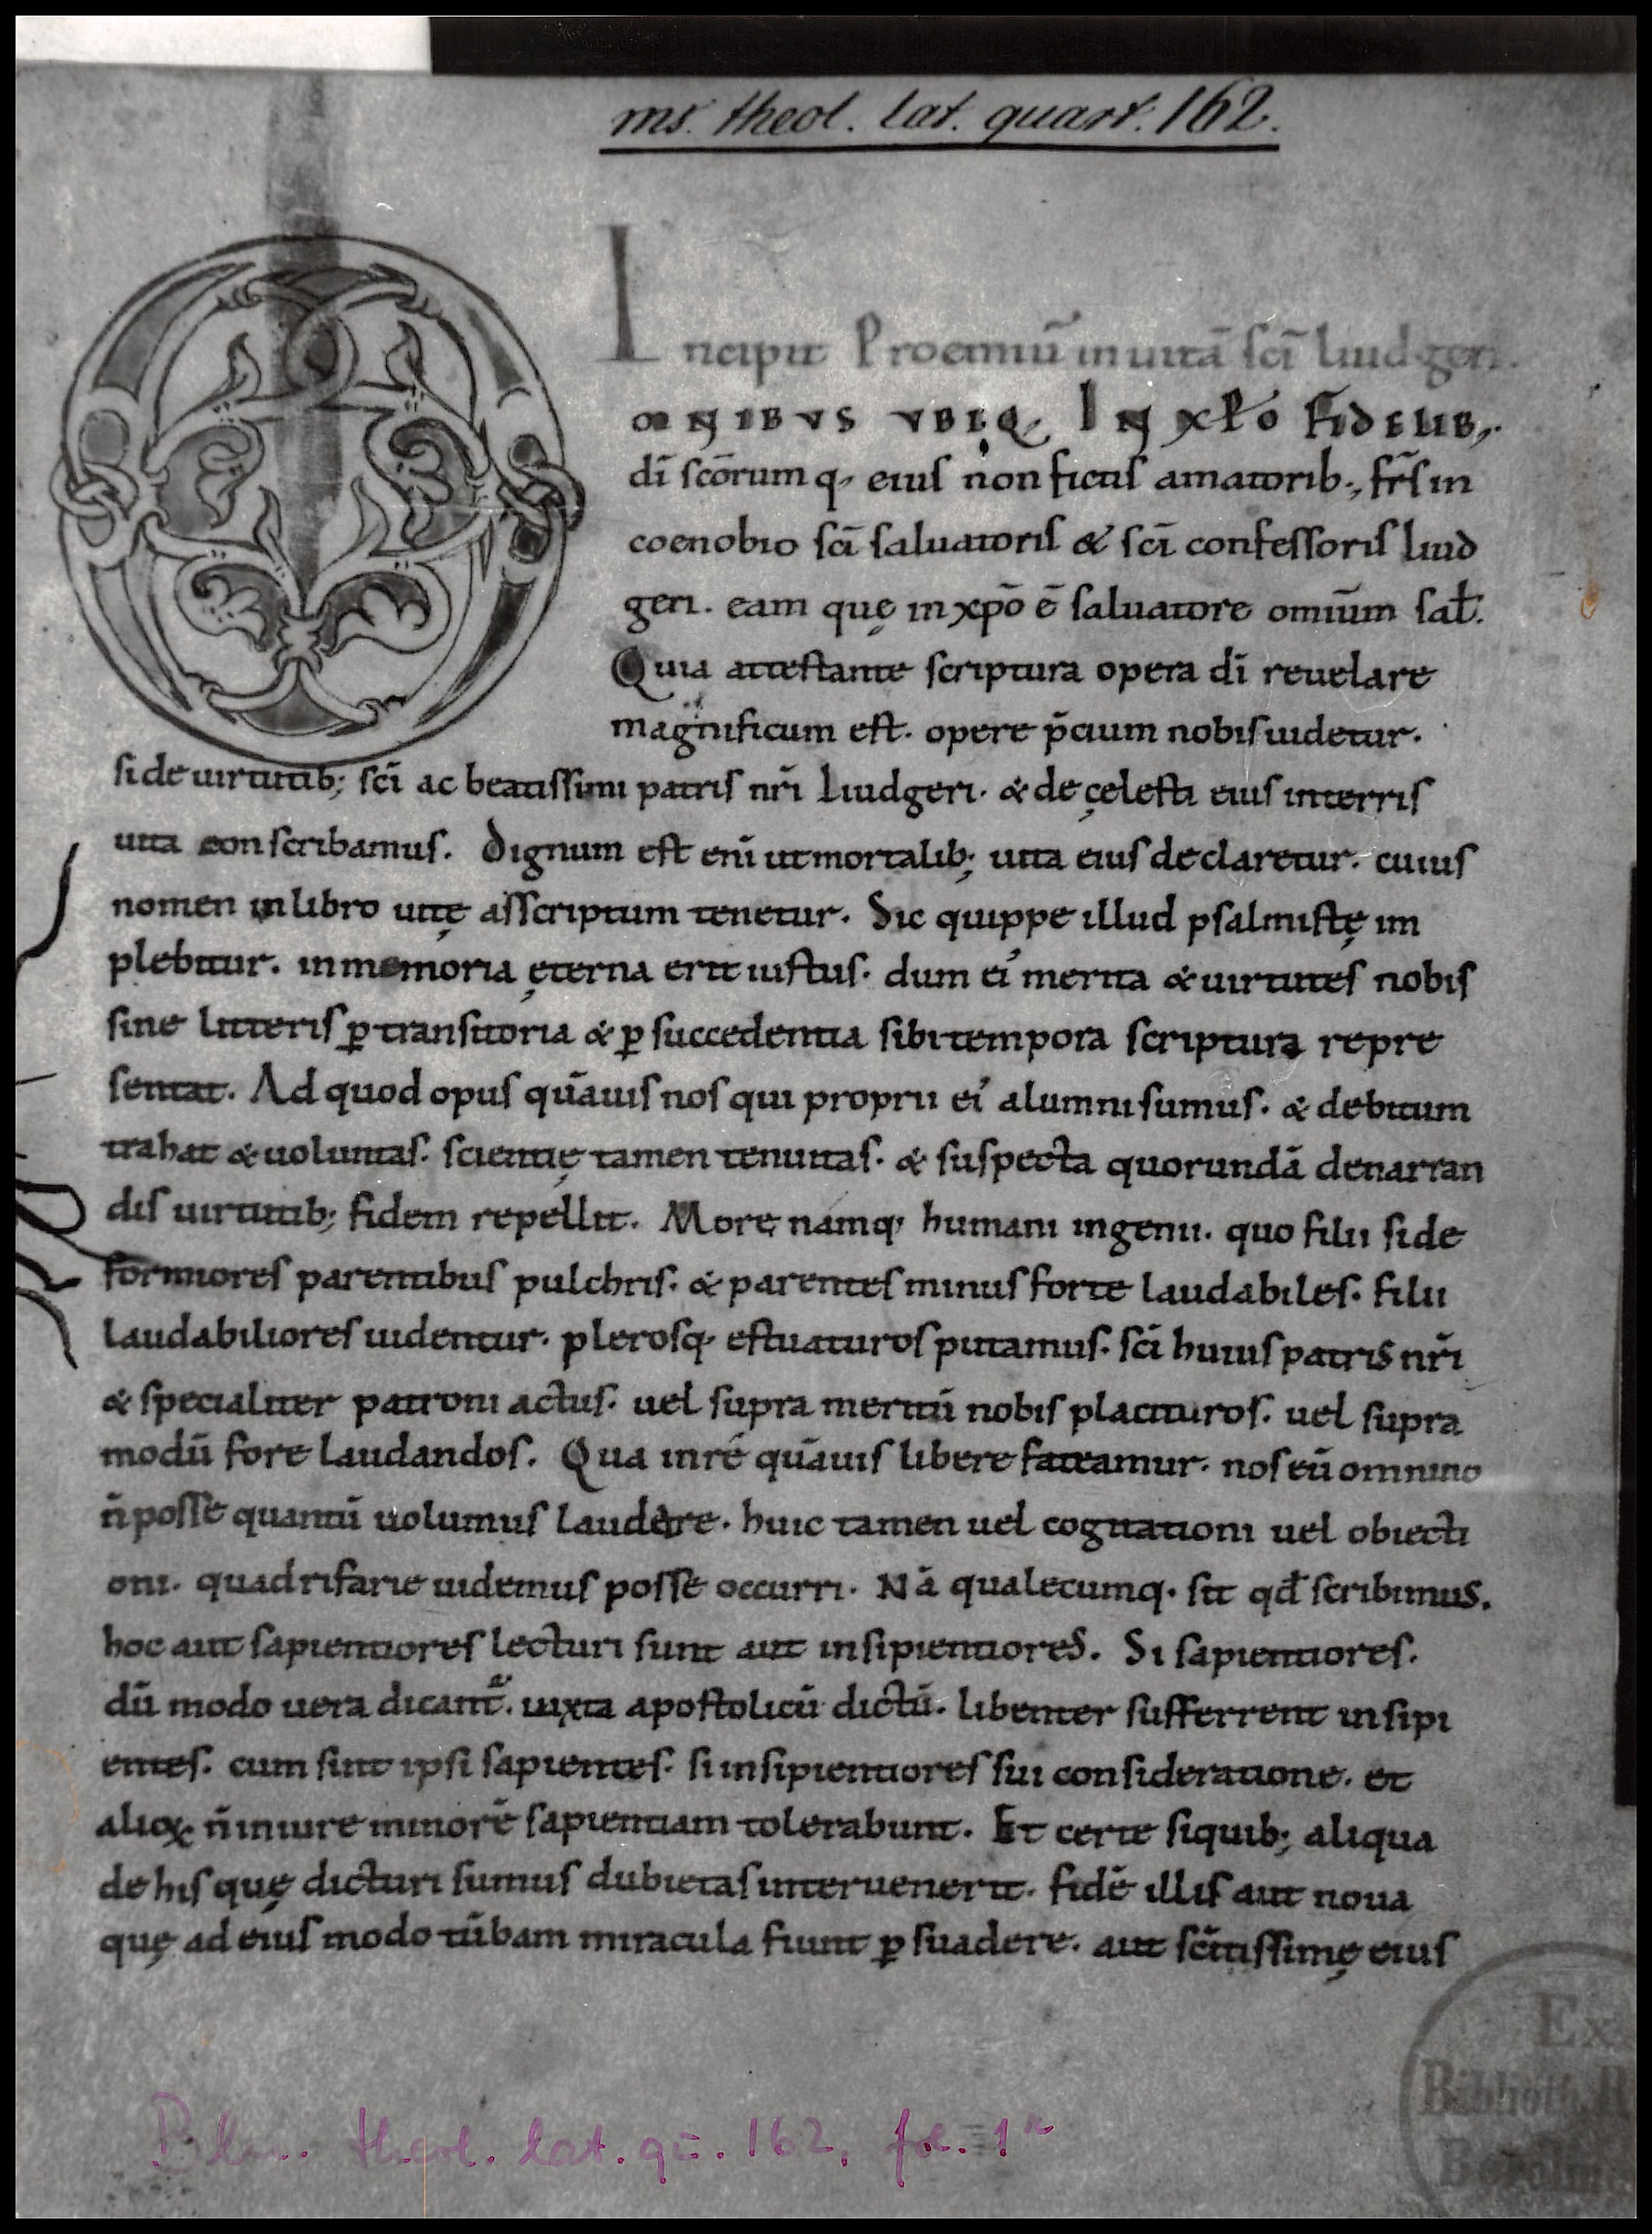 ms. theol. lat. quart. 162.
Incipit Proemiū in uitā sc̄i Liudgeri.
OMNIBVS VBIQ, IN XP̄O FIDELIB,.
dī scōrum q, eius non fictis amatorib., fr̄s in
coenobio sc̄i saluatoris & sc̄i confessoris Liud
geri. eam quę in xp̄o ē saluatore omīum sał.
Quia attestante scriptura opera dī reuelare
magnificum est. opere p̄cium nobis uidetur.
si de uirtutib; sc̄i ac beatissimi patris nr̄i Liudgeri. & de cęlesti eius in terris
uita conscribamus. Dignum est enī ut mortalib; uita eius declaretur. cuius
nomen in libro uitę asscriptum tenetur. Sic quippe illud psalmistę im
plebitur. in memoria ęterna erit iustus. dum ei' merita & uirtutes nobis
sine litteris ꝑ transitoria & ꝑ succedentia sibi tempora scriptura repre
sentat. Ad quod opus quāuis nos qui proprii ei' alumni sumus. & debitum
trahat & uoluntas. scientię tamen tenuitas. & suspecta quorundā de narran
dis uirtutib; fidem repellit. More namq, humani ingenii. quo filii si de
formiores parentibus pulchris. & parentes minus forte laudabiles. filii
laudabiliores uidentur. plerosq, estuaturos putamus. sc̄i huius patris nr̄i
& specialiter patroni actus. uel supra meritū nobis placituros. uel supra
modū fore laudandos. Qua in re quāuis libere fateamur. nos eū omnino
n̄ posse quantū uolumus laudare. huic tamen uel cogitationi uel obiecti
oni. quadrifarie uidemus posse occurri. Nā qualecumq. sit qđ scribimus.
hoc aut sapientiores lecturi sunt aut insipientiores. Si sapientiores.
dū modo uera dicant᷑. iuxta apostolicū dictū. libenter sufferrent insipi
entes. cum sint ipsi sapientes. si insipientiores sui consideratione. et
alioꝝ n̄ iniure minorē sapientiam tolerabunt. Et certe siquib; aliqua
de his quę dicturi sumus dubietas interuenerit. fidē illis aut noua
quę ad eius modo tūbam miracula fiunt ꝑsuadere. aut sc̄itissimę eius
Ex
Biblioth. R
Berolin
theol. lat. qu. 162, fol. 1r